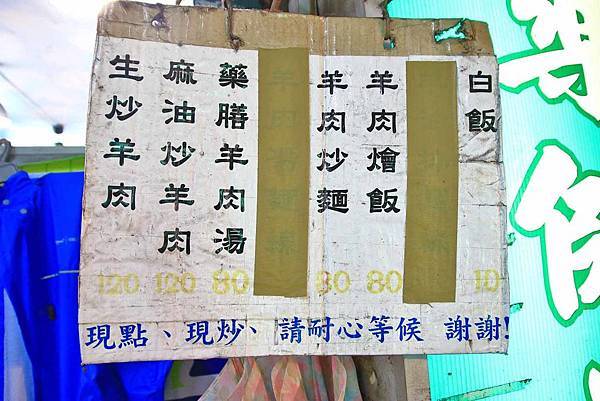 白飯 10
羊肉燴飯 80
羊肉炒麵 80
藥膳羊肉湯 80
麻油炒羊肉 120
生炒羊肉 120
現點、現炒、請耐心等候 謝謝!